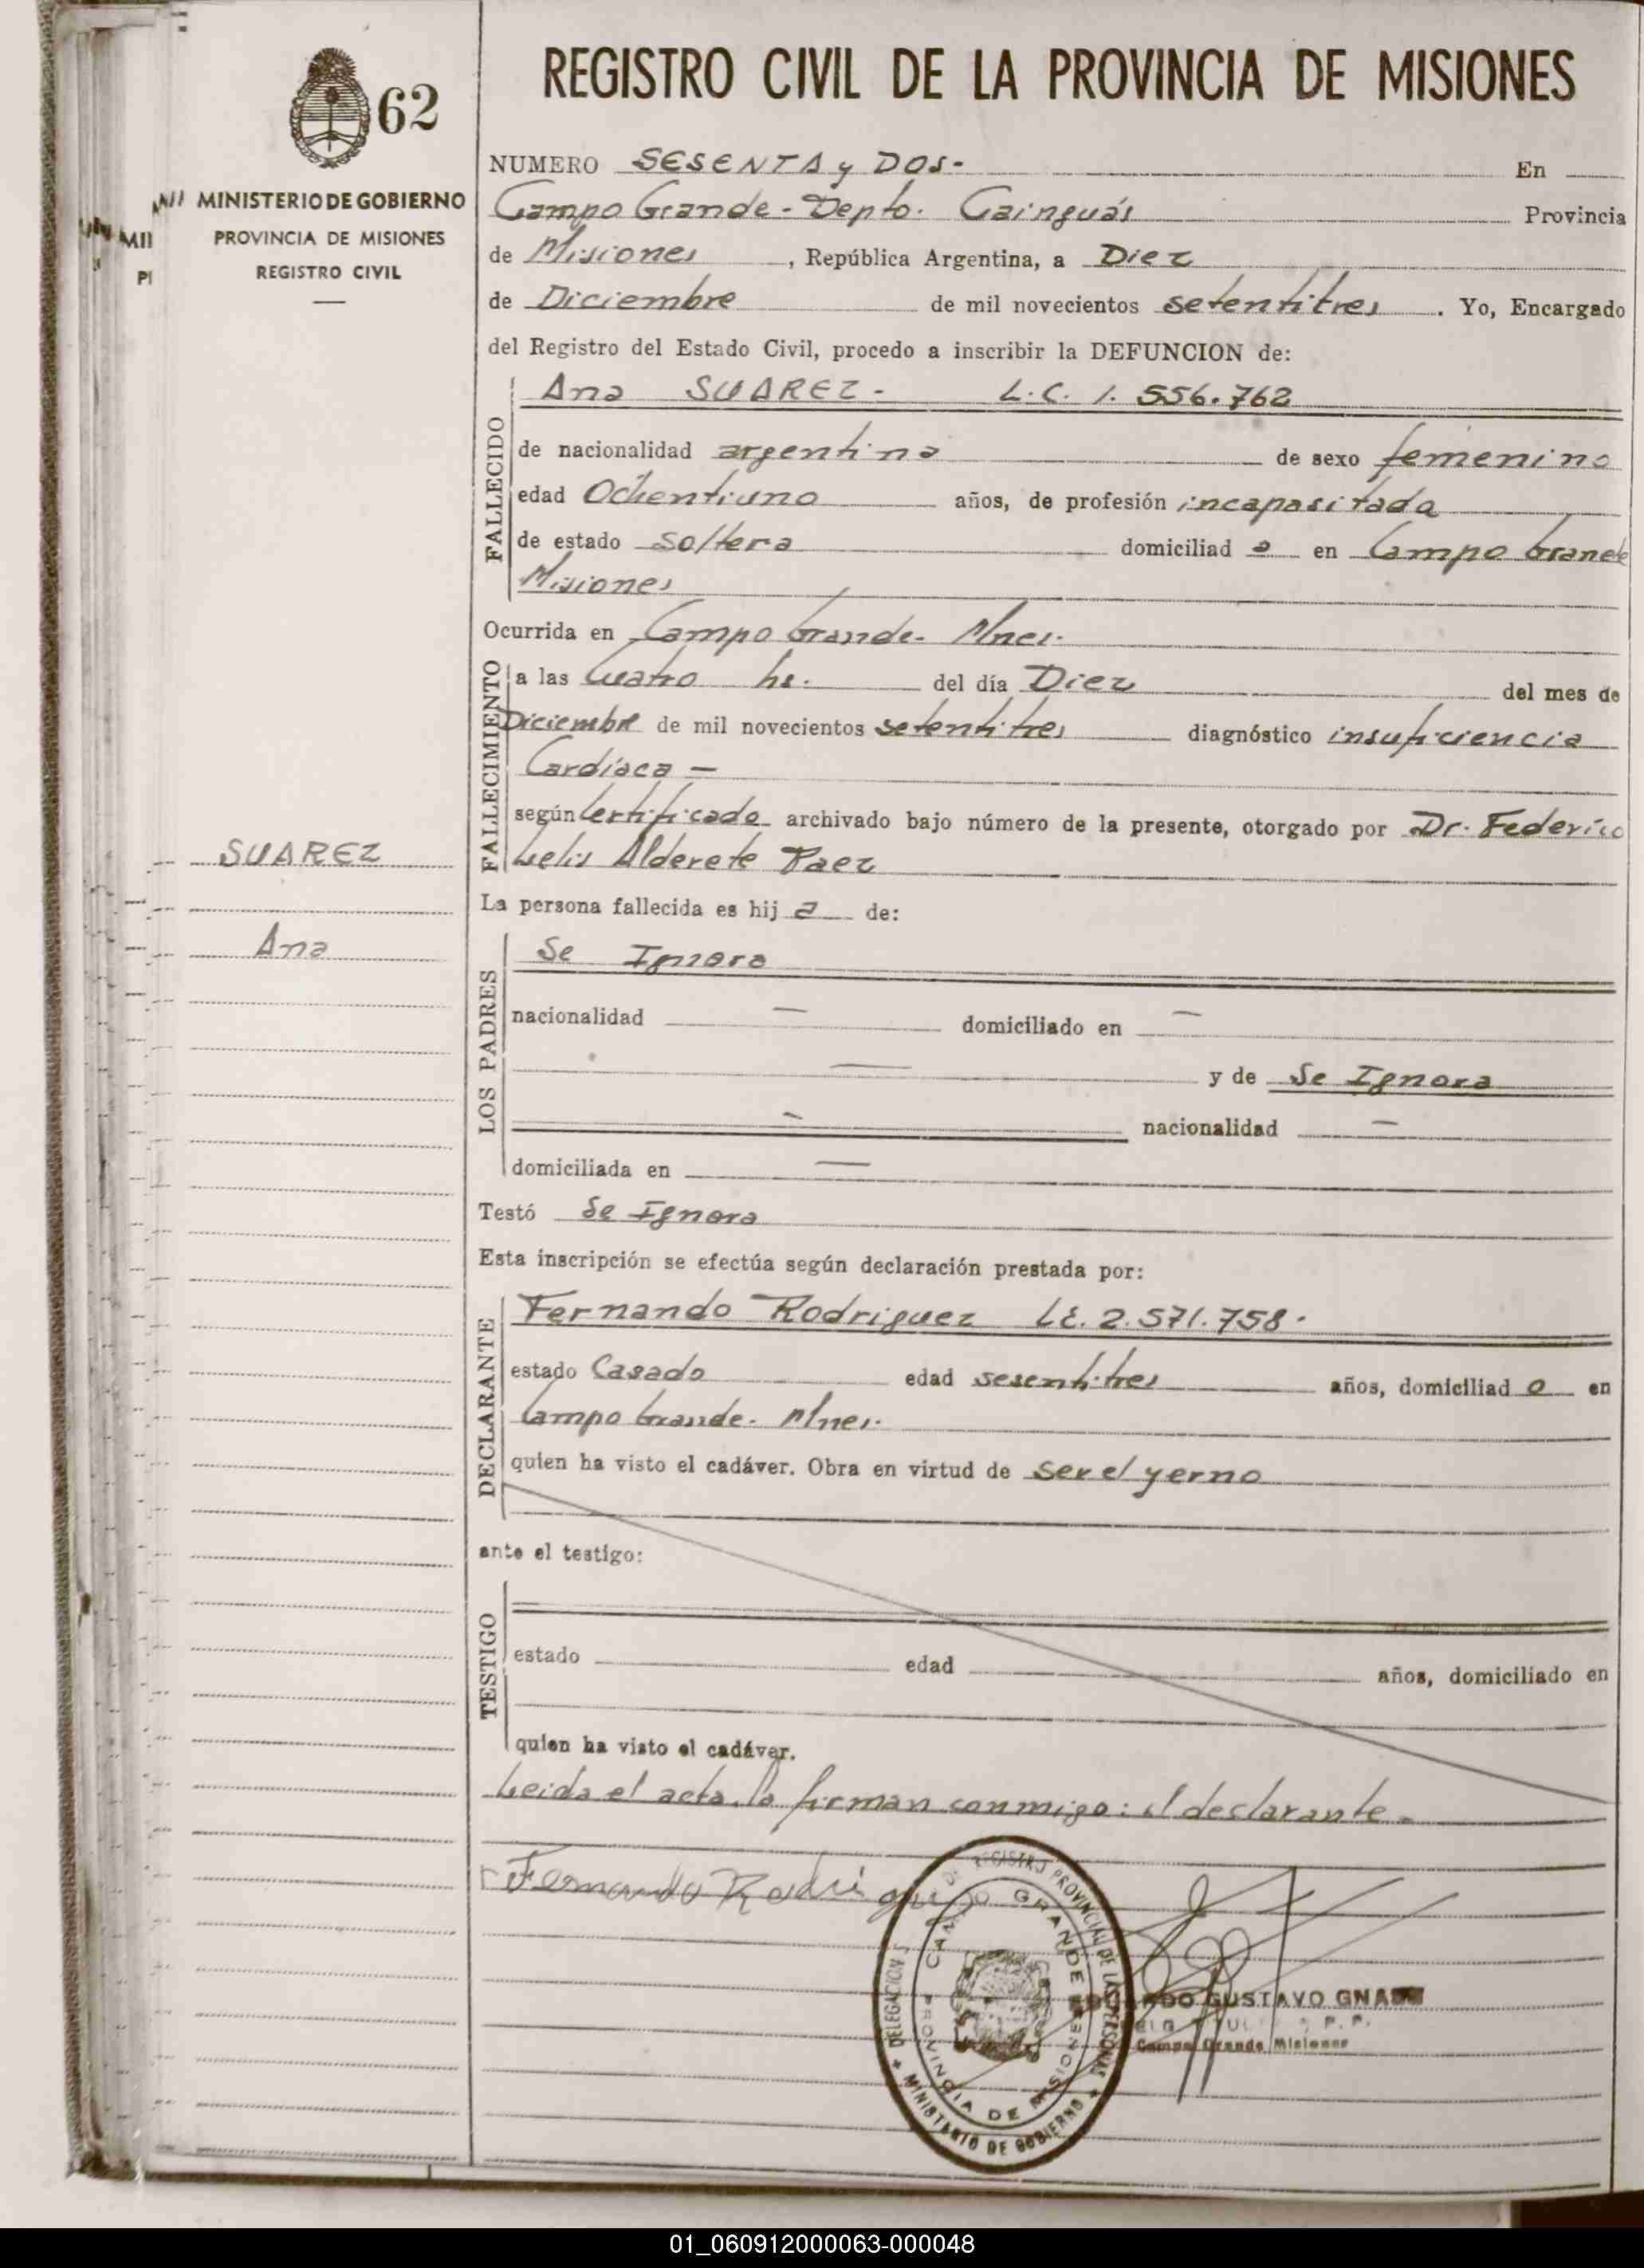 62
MINISTERIO DE GOBIERNO
PROVINCIA DE MISIONES
REGISTRO CIVIL
MII
PI
SUAREZ
Ana
REGISTRO CIVIL DE LA PROVINCIA DE MISIONES
NUMERO SESENTA y DOS- En
Campo Grande - Depto. Cainguás Provincia
de Misiones, República Argentina, a Diez
de Diciembre de mil novecientos setentitres. Yo, Encargado
del Registro del Estado Civil, procedo a inscribir la DEFUNCION de:
FALLECIDO
Ana SUAREZ - L.C. 1.556.762
de nacionalidad argentina de sexo femenino
edad Ochentiuno años, de profesión incapasitada
de estado soltera domiciliad a en Campo Grande
Misiones
Ocurrida en Campo Grande - Mnes.
FALLECIMIENTO
a las Cuatro hs. del día Diez del mes de
Diciembre de mil novecientos setentitres diagnóstico insuficiencia
Cardíaca -
según Certificado archivado bajo número de la presente, otorgado por Dr. Federico
Alderete Paez
La persona fallecida es hij a de:
LOS PADRES
Se Ignora
nacionalidad — domiciliado en —
— y de Se Ignora
— nacionalidad —
domiciliada en —
Testó Se Ignora
Esta inscripción se efectúa según declaración prestada por:
DECLARANTE
Fernando Rodriguez L.E. 2.571.758.
estado Casado edad sesentitres años, domiciliad o en
Campo Grande - Mnes.
quien ha visto el cadáver. Obra en virtud de ser el yerno
ante el testigo:
TESTIGO
estado edad años, domiciliado en
quien ha visto el cadáver.
Leida el acta, la firman conmigo: el declarante.
Fernando Rodriguez
DELEGACION REGISTRO PROVINCIAL DE LAS PERSONAS
MINISTERIO DE GOBIERNO
CAMPO GRANDE
PROVINCIA DE MISIONES
GUSTAVO
Campo Grande Misiones
01_060912000063-000048